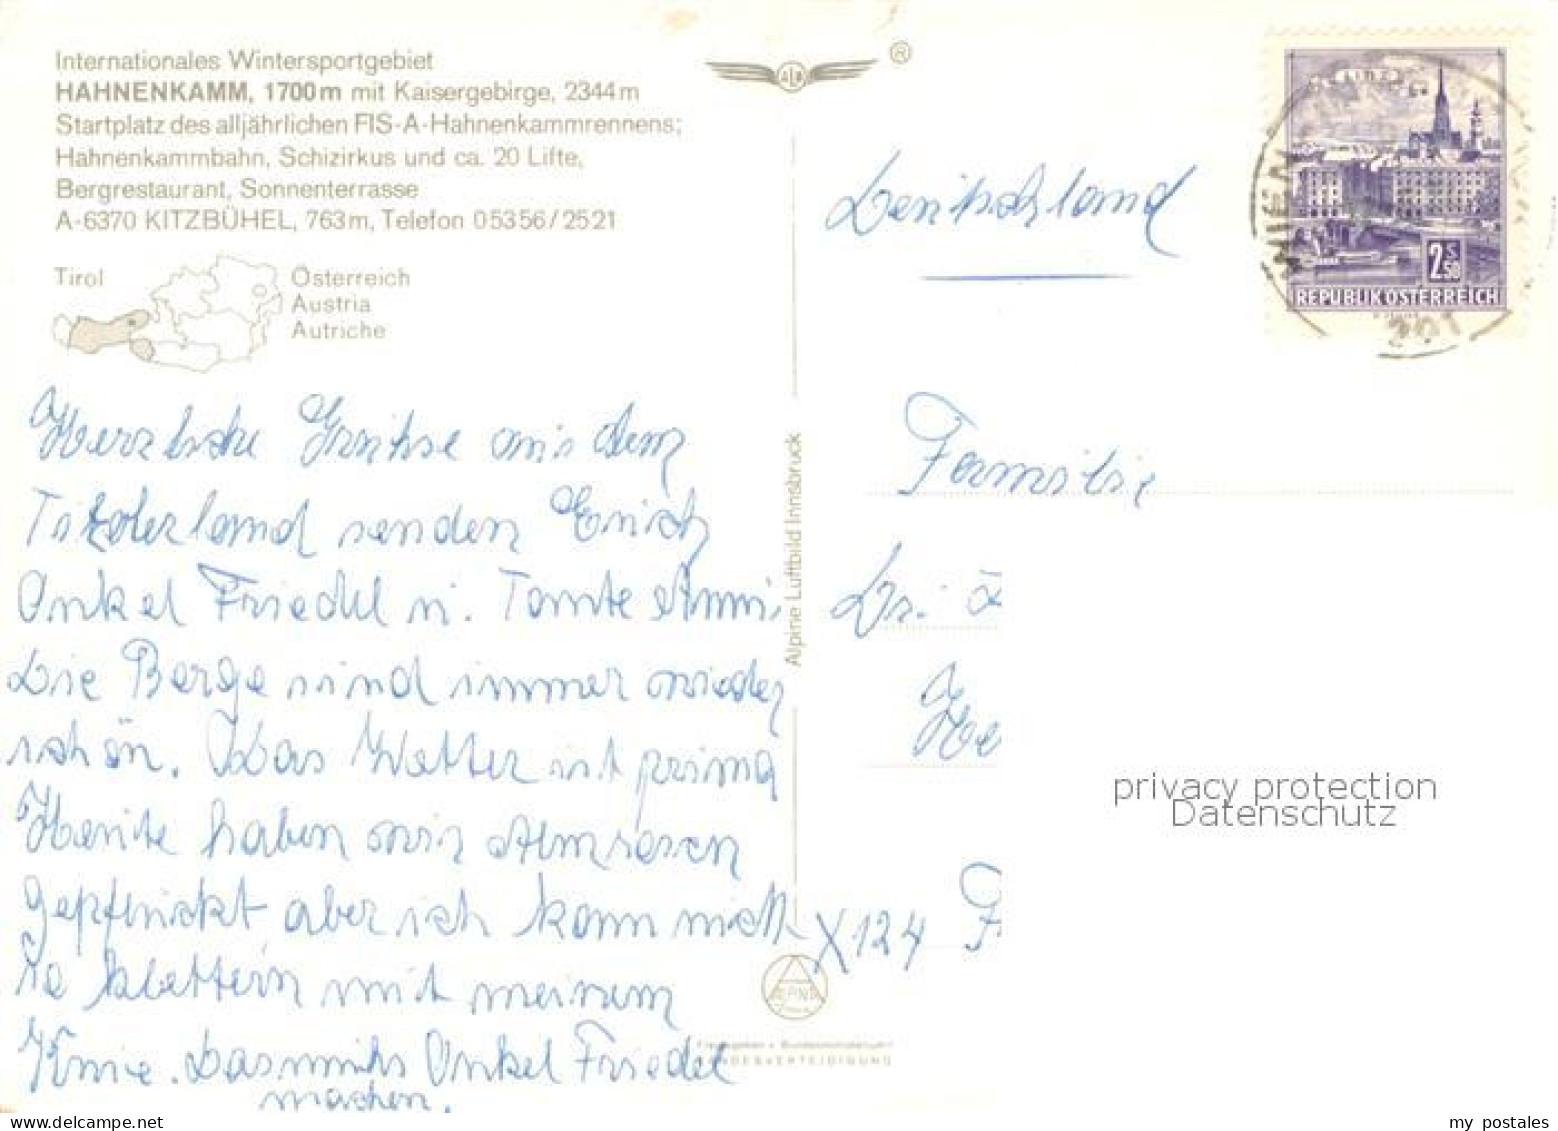 Internationales Wintersportgebiet
HAHNENKAMM, 1700m mit Kaisergebirge, 2344m
Startplatz des alljährlichen FIS-A-Hahnenkammrennens;
Hahnenkammbahn, Schizirkus und ca. 20 Lifte,
Bergrestaurant, Sonnenterrasse
A-6370 KITZBÜHEL, 763m, Telefon 05356/2521
Tirol
Österreich
Austria
Autriche
Herzliche Grüsse aus dem
Tirolerland senden Euch
Onkel Friedel u. Tante Anni.
Die Berge sind immer wieder
schön. Das Wetter ist prima
Heute haben wir Almrosen
gepflückt aber ich kann nicht
so klettern mit meinem
Knie. Das muss Onkel Friedel
machen.
Alpine Luftbild Innsbruck
®
Deutschland
WIEN
201
2 S. 50
REPUBLIK ÖSTERREICH
Familie
Dr.
He
X124 F
ALPINE
LANDESVERTEIDIGUNG
privacy protection
Datenschutz
my postales